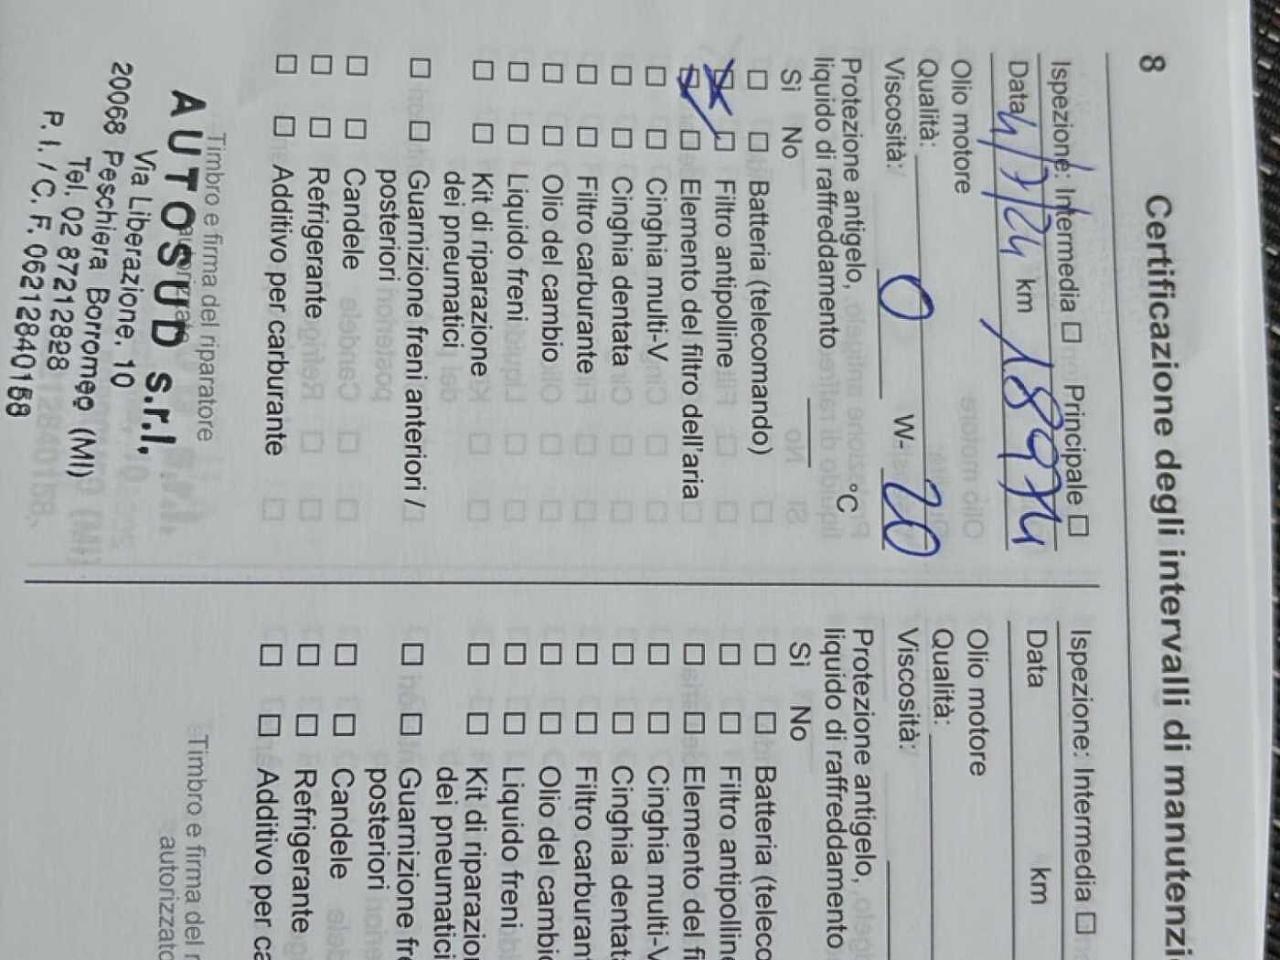 8 Certificazione degli intervalli di manutenzi
Ispezione: Intermedia ☐ Principale ☐
Data 4/7/24 km 18974
Olio motore
Qualità:
Viscosità: 0 W- 20
Protezione antigelo,
liquido di raffreddamento °C
Sì No
☐ ☐ Batteria (telecomando)
☒ ☐ Filtro antipolline
☒ ☐ Elemento del filtro dell'aria
☐ ☐ Cinghia multi-V
☐ ☐ Cinghia dentata
☐ ☐ Filtro carburante
☐ ☐ Olio del cambio
☐ ☐ Liquido freni
☐ ☐ Kit di riparazione
dei pneumatici
☐ ☐ Guarnizione freni anteriori /
posteriori
☐ ☐ Candele
☐ ☐ Refrigerante
☐ ☐ Additivo per carburante
Timbro e firma del riparatore
AUTOSUD s.r.l.
Via Liberazione, 10
20068 Peschiera Borromeo (MI)
Tel. 02 87212828
P. I. / C. F. 06212840158
Ispezione: Intermedia ☐
Data km
Olio motore
Qualità:
Viscosità:
Protezione antigelo,
liquido di raffreddamento
Sì No
☐ ☐ Batteria (teleco
☐ ☐ Filtro antipolline
☐ ☐ Elemento del fi
☐ ☐ Cinghia multi-V
☐ ☐ Cinghia dentat
☐ ☐ Filtro carburan
☐ ☐ Olio del cambi
☐ ☐ Liquido freni
☐ ☐ Kit di riparazio
dei pneumatici
☐ ☐ Guarnizione fre
posteriori
☐ ☐ Candele
☐ ☐ Refrigerante
☐ ☐ Additivo per ca
Timbro e firma del r
autorizzato